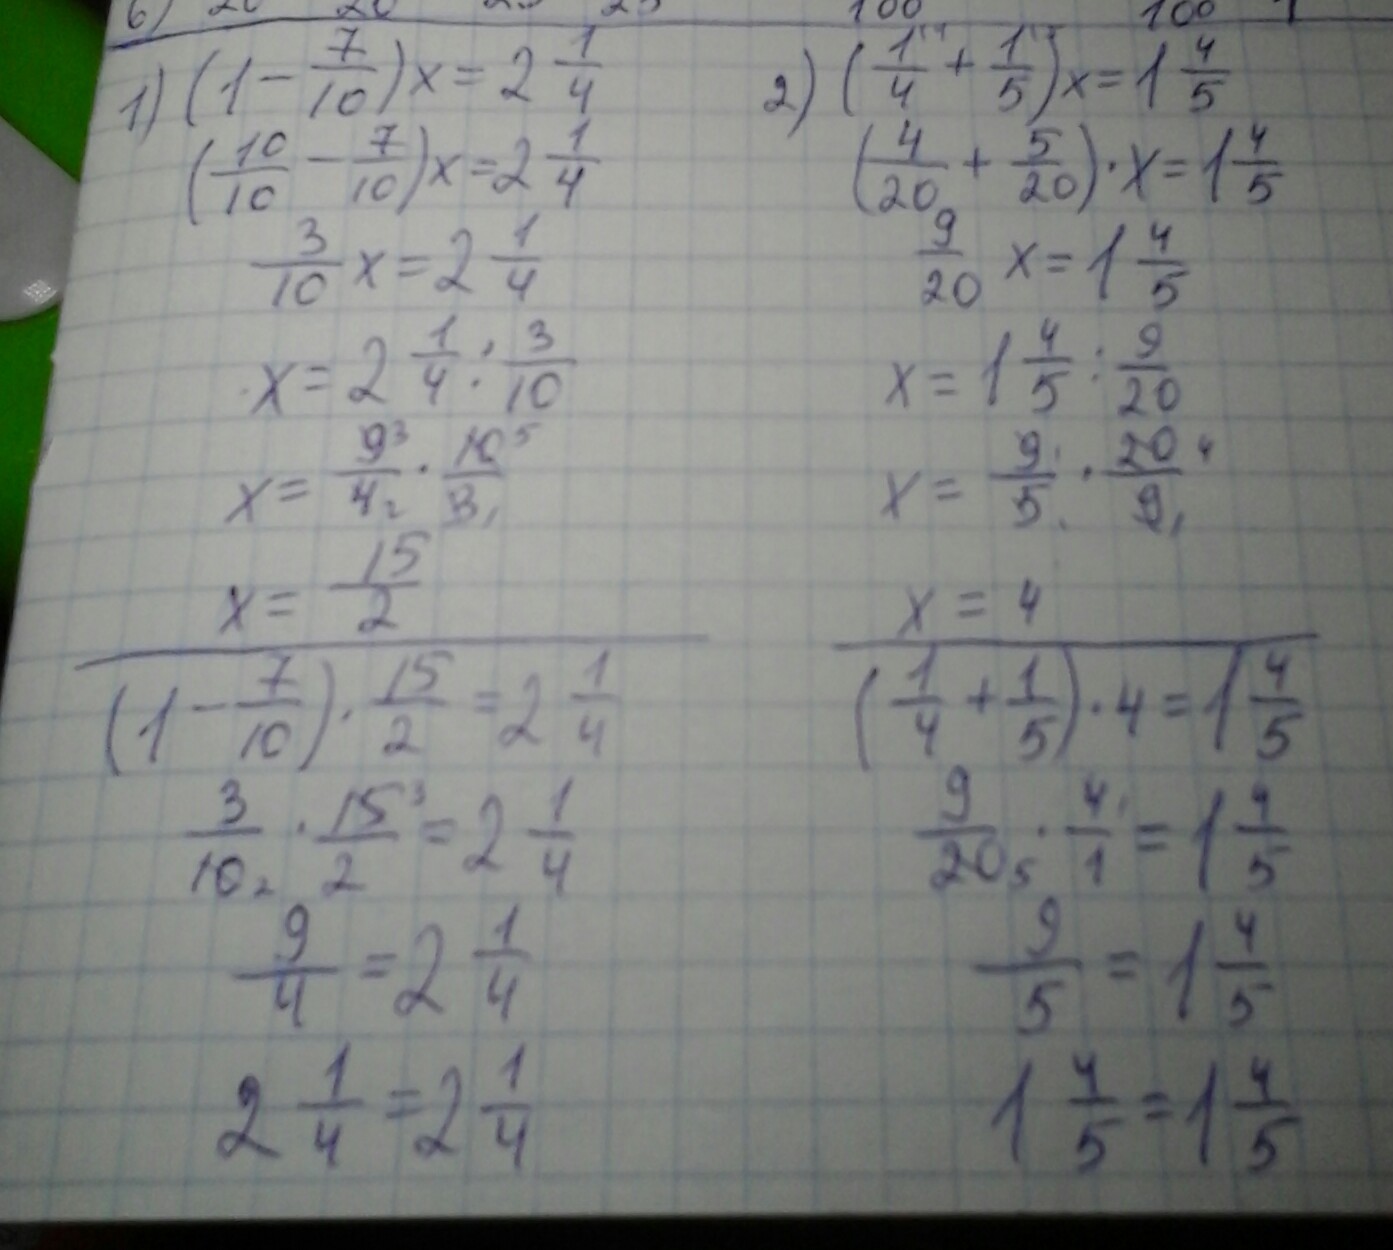 6) 20 20 25 25 100 100
1) (1 - 7/10)x = 2 1/4
(10/10 - 7/10)x = 2 1/4
3/10 x = 2 1/4
x = 2 1/4 : 3/10
x = 9³/4₂ · 10⁵/3₁
x = 15/2
(1 - 7/10) · 15/2 = 2 1/4
3/10₂ · 15³/2 = 2 1/4
9/4 = 2 1/4
2 1/4 = 2 1/4
2) (1/4 + 1/5)x = 1 4/5
(4/20 + 5/20) · x = 1 4/5
9/20 x = 1 4/5
x = 1 4/5 : 9/20
x = 9¹/5₁ · 20⁴/9₁
x = 4
(1/4 + 1/5) · 4 = 1 4/5
9/20₅ · 4¹/1 = 1 4/5
9/5 = 1 4/5
1 4/5 = 1 4/5